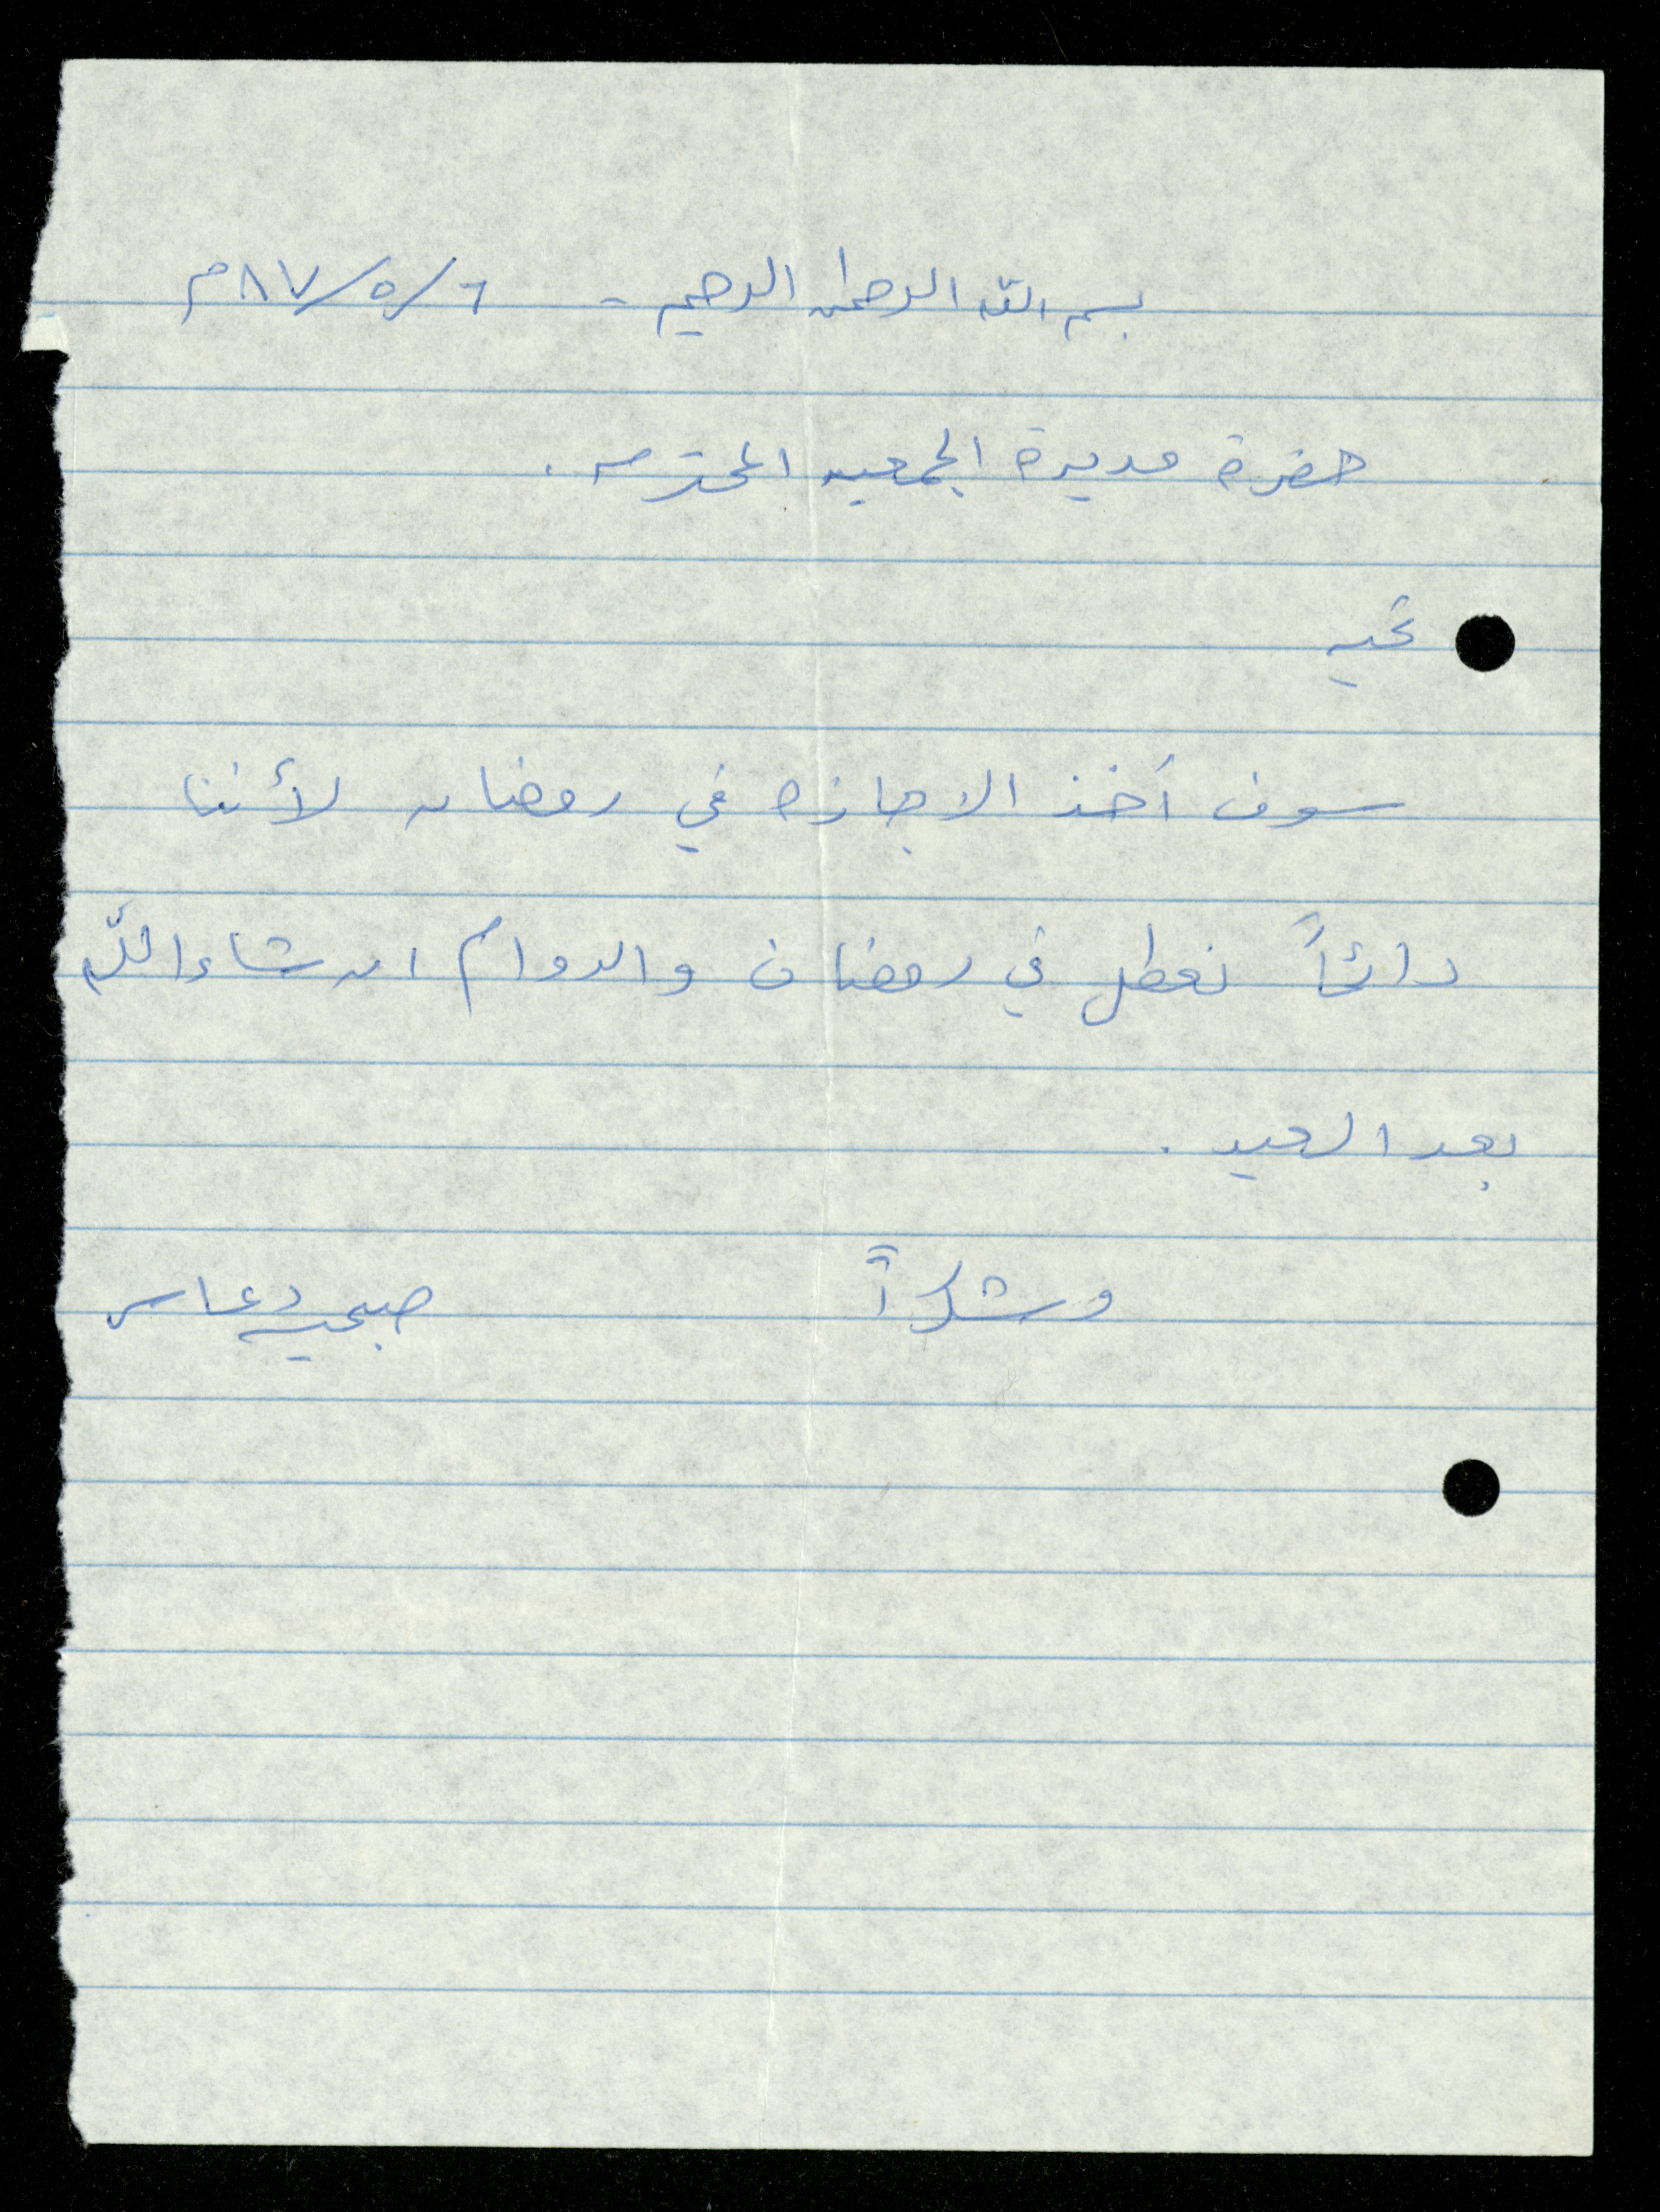 بسم الله الرحمن الرحيم - ٦/٥/٨٧م
حضرة مديرة الجمعيه المحترمه .
تحيه
سوف آخذ الاجازه في رمضان لأننا
دائماً نعطل في رمضان والدوام ان شاء الله
بعد العيد .
وشكراً صبحيه دعاس